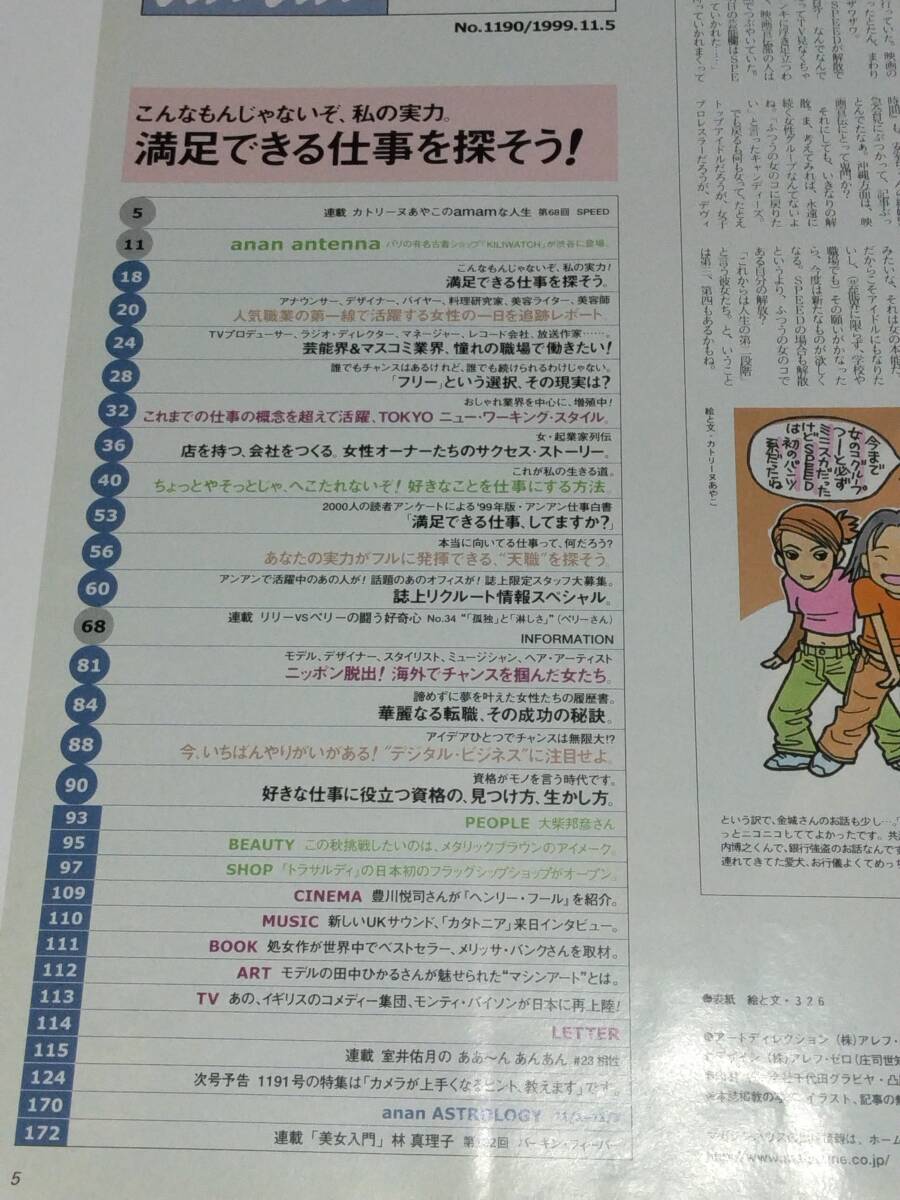 No.1190/1999.11.5
こんなもんじゃないぞ、私の実力。
満足できる仕事を探そう!
5 連載 カトリーヌあやこのamamな人生 第68回 SPEED
11 anan antenna パリの有名古着ショップ「KILIWATCH」が渋谷に登場。
18 こんなもんじゃないぞ、私の実力!
満足できる仕事を探そう。
20 アナウンサー、デザイナー、バイヤー、料理研究家、美容ライター、美容師
人気職業の第一線で活躍する女性の一日を追跡レポート。
24 TVプロデューサー、ラジオ・ディレクター、マネージャー、レコード会社、放送作家……。
芸能界&マスコミ業界、憧れの職場で働きたい!
28 誰でもチャンスはあるけれど、誰でも続けられるわけじゃない。
「フリー」という選択、その現実は?
32 おしゃれ業界を中心に、増殖中!
これまでの仕事の概念を超えて活躍、TOKYO ニュー・ワーキング・スタイル。
36 女・起業家列伝
店を持つ、会社をつくる。女性オーナーたちのサクセス・ストーリー。
40 これが私の生きる道。
ちょっとやそっとじゃ、へこたれないぞ! 好きなことを仕事にする方法。
53 2000人の読者アンケートによる'99年版・アンアン仕事白書
「満足できる仕事、してますか?」
56 本当に向いてる仕事って、何だろう?
あなたの実力がフルに発揮できる、“天職”を探そう。
60 アンアンで活躍中のあの人が! 話題のあのオフィスが! 誌上限定スタッフ大募集。
誌上リクルート情報スペシャル。
68 連載 リリーvsペリーの闘う好奇心 No.34 “「孤独」と「淋しさ」”(ペリーさん)
INFORMATION
81 モデル、デザイナー、スタイリスト、ミュージシャン、ヘア・アーティスト
ニッポン脱出! 海外でチャンスを掴んだ女たち。
84 諦めずに夢を叶えた女性たちの履歴書。
華麗なる転職、その成功の秘訣。
88 アイデアひとつでチャンスは無限大!?
今、いちばんやりがいがある! “デジタル・ビジネス”に注目せよ。
90 資格がモノを言う時代です。
好きな仕事に役立つ資格の、見つけ方、生かし方。
93 PEOPLE 大柴邦彦さん
95 BEAUTY この秋挑戦したいのは、メタリックブラウンのアイメーク。
97 SHOP 「トラサルディ」の日本初のフラッグシップショップがオープン。
109 CINEMA 豊川悦司さんが「ヘンリー・フール」を紹介。
110 MUSIC 新しいUKサウンド、「カタトニア」来日インタビュー。
111 BOOK 処女作が世界中でベストセラー、メリッサ・バンクさんを取材。
112 ART モデルの田中ひかるさんが魅せられた“マシンアート”とは。
113 TV あの、イギリスのコメディー集団、モンティ・パイソンが日本に再上陸!
114 LETTER
115 連載 室井佑月の ああ〜ん あんあん #23 相性
124 次号予告 1191号の特集は「カメラが上手くなるヒント、教えます」です。
170 anan ASTROLOGY
172 連載 「美女入門」 林 真理子 バーキン・フィーバー
5
時間」も
とんでたなあ。沖縄方面は、映
画宣伝にとって鬼門か?
それにしても、いきなりの解
散。ま、考えてみれば、永遠に
続く女性グループなんてないよ
ね。「ふつうの女のコに戻りた
い」と言ったキャンディーズ。
でも戻るも何もなって、たとえ
トップアイドルだろうが、女子
プロレスラーだろうが、デヴィ
みたいな、それは女の本能だ
だからこそアイドルにもなりた
いし、(芸能界に限らず、学校や
職場でも)その願いがかなった
ら、今度は新たなものが欲しく
なる。SPEEDの場合も解散
というより、ふつうの女のコで
ある自分の解放?
「これからは人生の第二段階」
と言う彼女たち。と、いうこと
は第三、第四もあるかもね。
絵と文・カトリーヌあやこ
今まで
女のコグループ
つーと必ず
ミニスカだった
けどSPEED
は初のパンツ
系だったね
という訳で、金城さんのお話も少し…。「
っとニコニコしててよかったです。共演
内博之くんで、銀行強盗のお話なんです
連れてきてた愛犬、お行儀よくてめっち
●表紙 絵と文・326
●アートディレクション (株)アレフ・
デザイン (株)アレフ・ゼロ(庄司世知